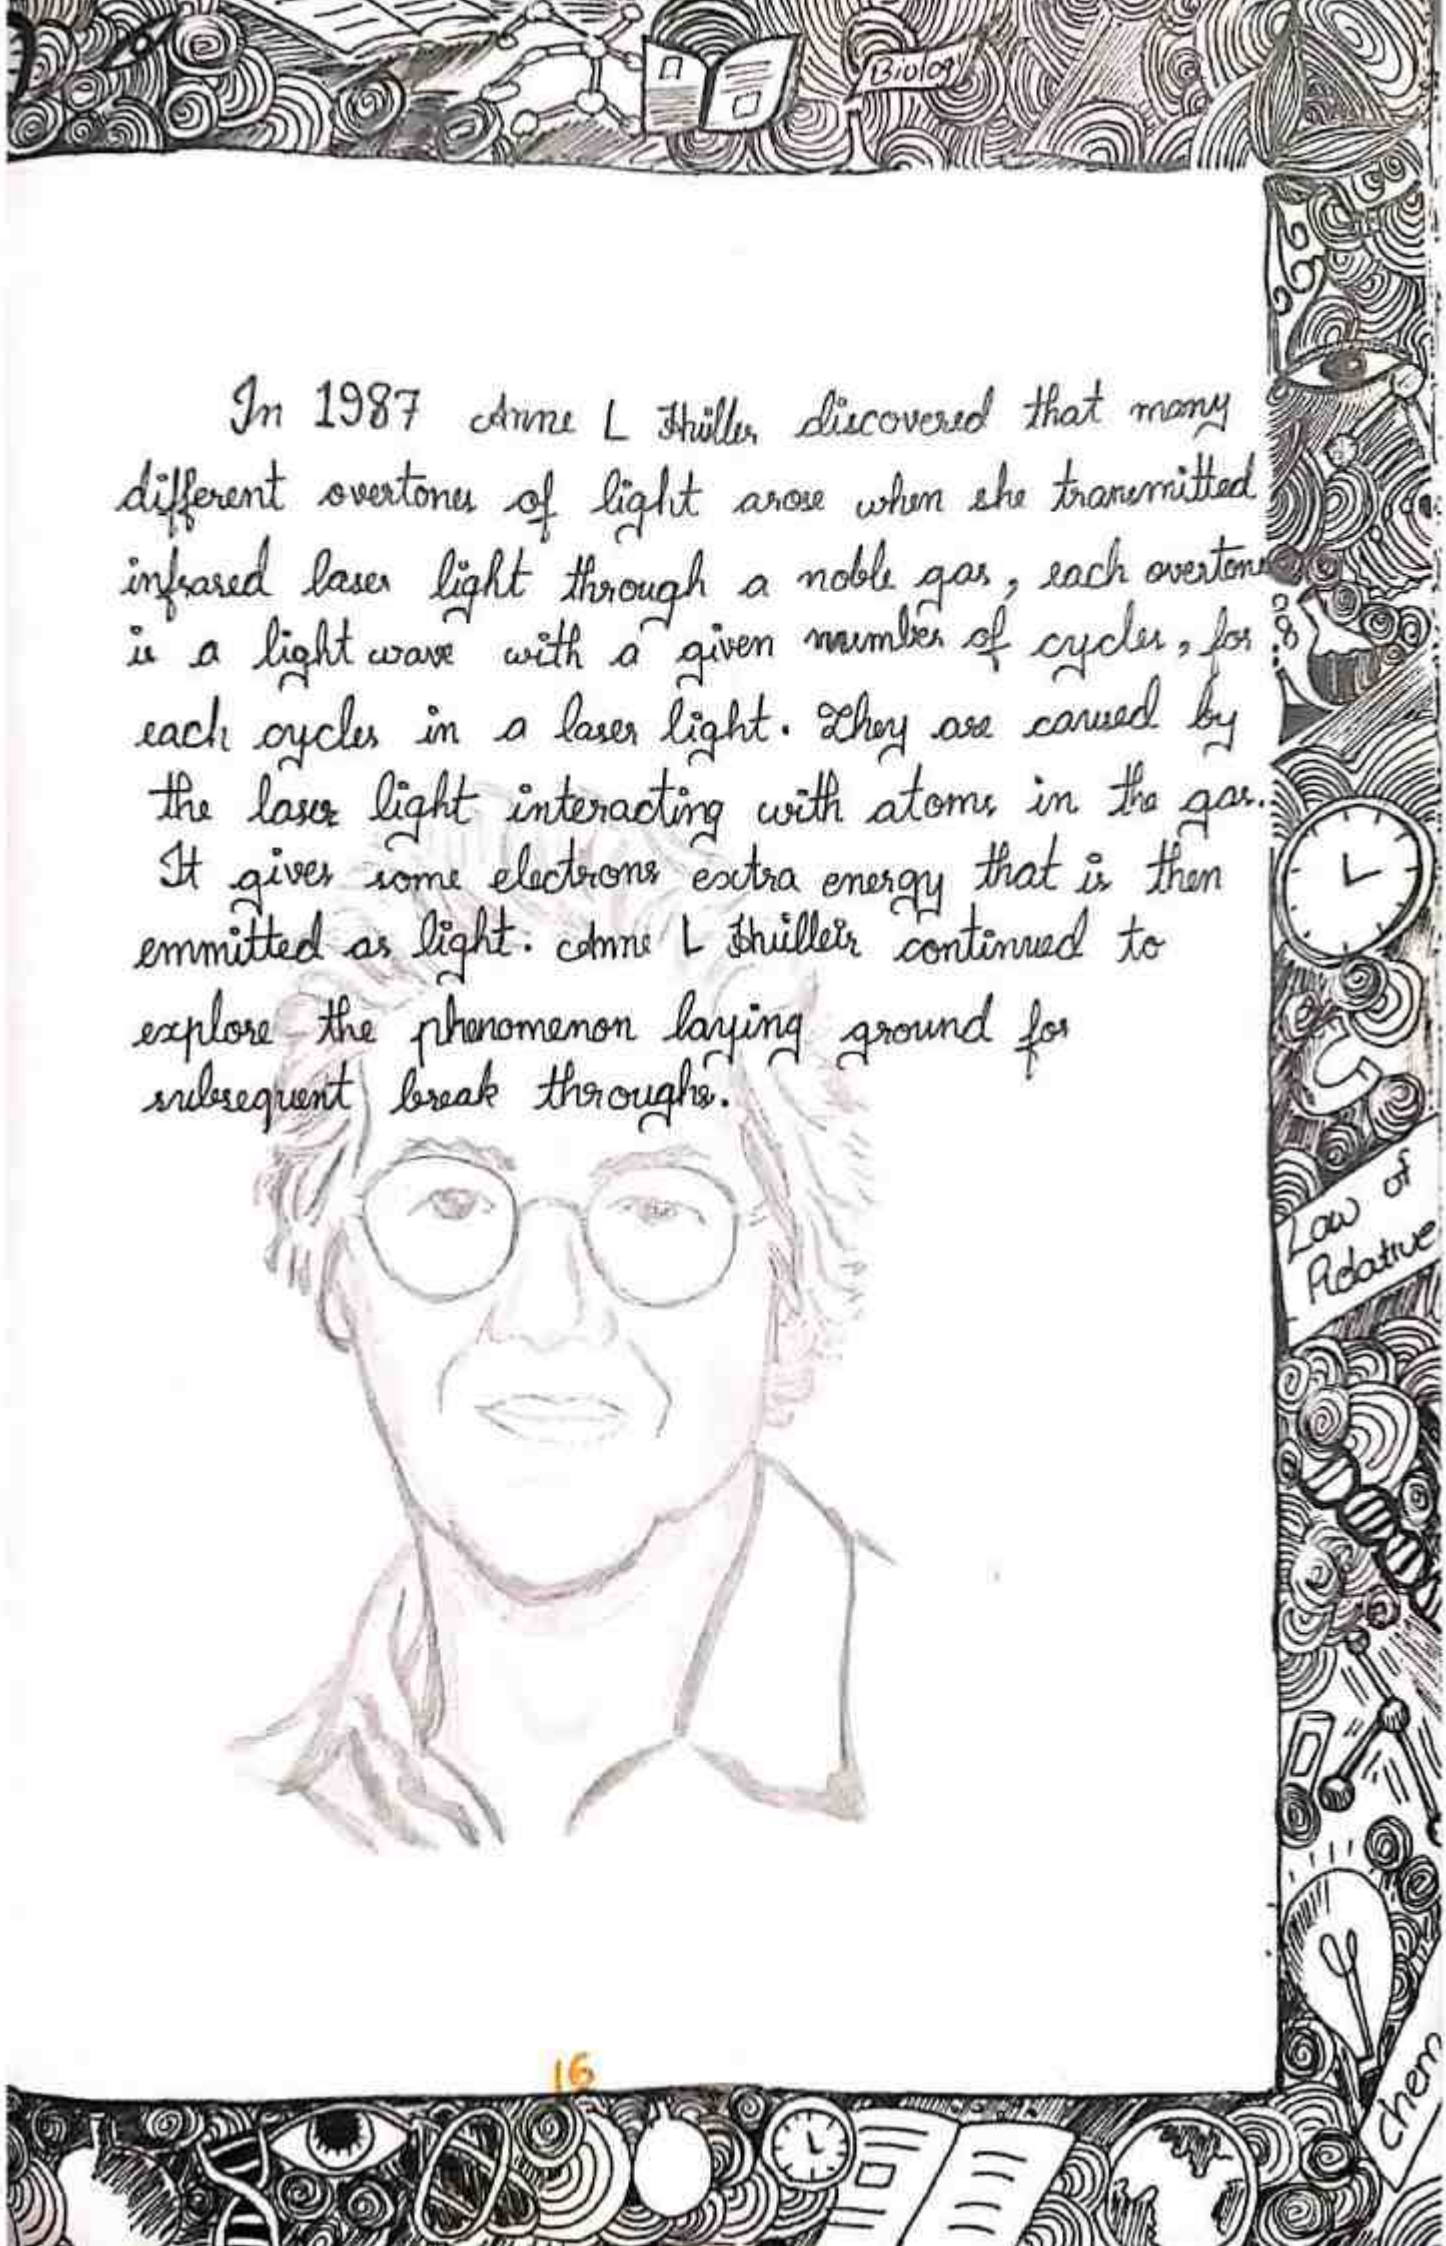 Biology
In 1987 Anne L Hüller discovered that many
different overtones of light arose when she transmitted
infrared laser light through a noble gas, each overtone
is a light wave with a given number of cycles, for
each cycles in a laser light. They are caused by
the laser light interacting with atoms in the gas.
It gives some electrons extra energy that is then
emmitted as light. Anne L Hülleir continued to
explore the phenomenon laying ground for
subsequent break throughs.
Law of
Relative
Chem
16